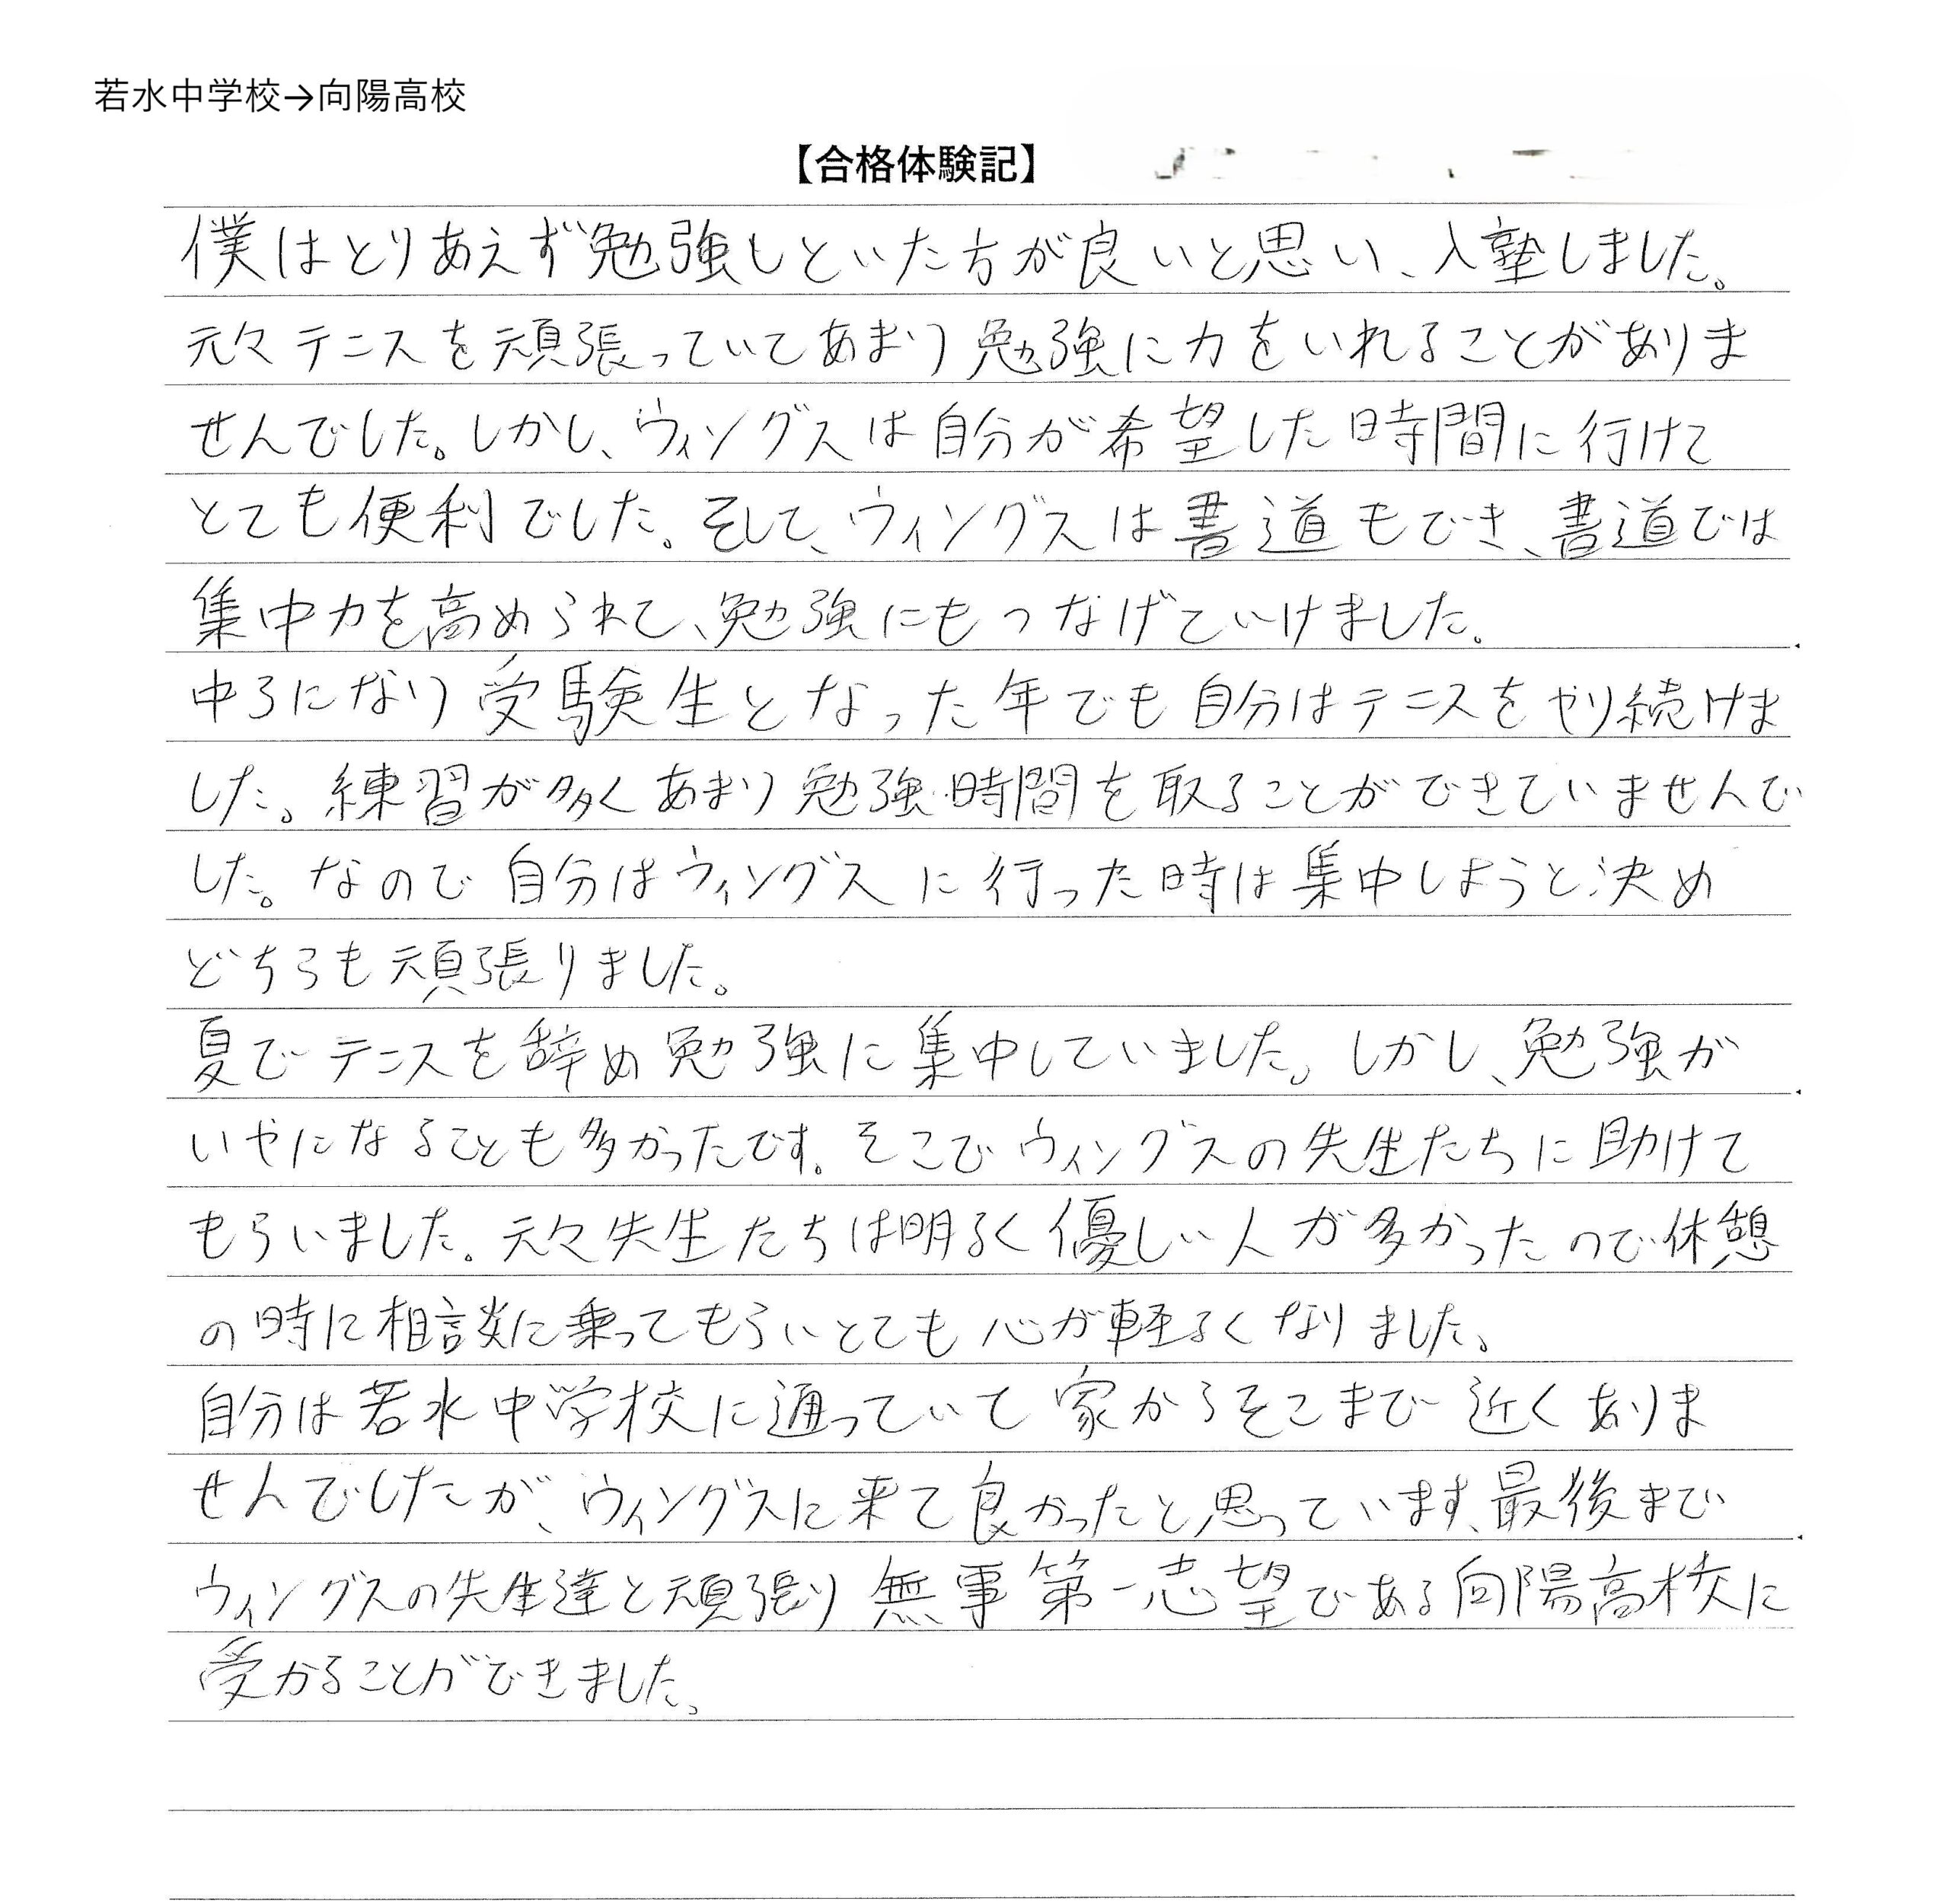 若水中学校→向陽高校
【合格体験記】
僕はとりあえず勉強しといた方が良いと思い、入塾しました。
元々テニスを頑張っていてあまり勉強に力をいれることがありま
せんでした。しかし、ウィングスは自分が希望した時間に行けて
とても便利でした。そして、ウィングスは書道もでき、書道では
集中力を高められて、勉強にもつなげていけました。
中3になり受験生となった年でも自分はテニスをやり続けま
した。練習が多くあまり勉強時間を取ることができていませんで
した。なので自分はウィングスに行った時は集中しようと決め
どちらも頑張りました。
夏でテニスを辞め勉強に集中していました。しかし、勉強が
いやになることも多かったです。そこでウィングスの先生たちに助けて
もらいました。元々先生たちは明るく優しい人が多かったので休憩
の時に相談に乗ってもらいとても心が軽るくなりました。
自分は若水中学校に通っていて家からそこまで近くありま
せんでしたが、ウィングスに来て良かったと思っています、最後まで
ウィングスの先生達と頑張り無事第一志望である向陽高校に
受かることができました。